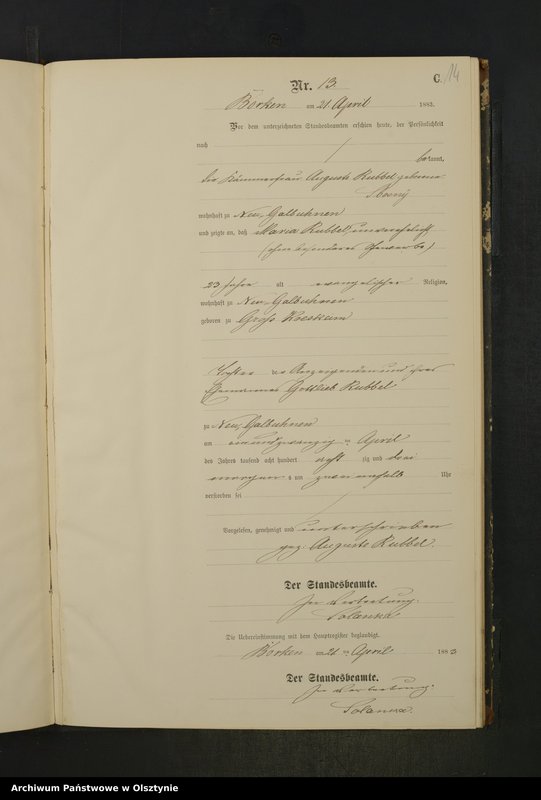 C. 14
Nr. 13.
Borken am 21 April 1883.
Vor dem unterzeichneten Standesbeamten erschien heute, der Persönlichkeit
nach
bekannt,
die Kämmerfrau Auguste Rubbel geborene
wohnhaft zu Neu Galbuhnen
und zeigte an, daß Maria Rubbel, unverehelicht
(ohne besonderes Gewerbe)
23 Jahre alt evangelischer Religion,
wohnhaft zu Neu Galbuhnen
geboren zu Groß
Tochter der Anzeigenden und ihres
Ehemannes Gottlieb Rubbel
zu Neu Galbuhnen
am einundzwanzigten April
des Jahres tausend acht hundert acht zig und drei
morgens um zwei einhalb Uhr
verstorben sei
Vorgelesen, genehmigt und unterschrieben
gez. Auguste Rubbel.
Der Standesbeamte.
In Vertretung.
Die Uebereinstimmung mit dem Hauptregister beglaubigt.
Borken am 21 ten April 1883
Der Standesbeamte.
In Vertretung.
Archiwum Państwowe w Olsztynie